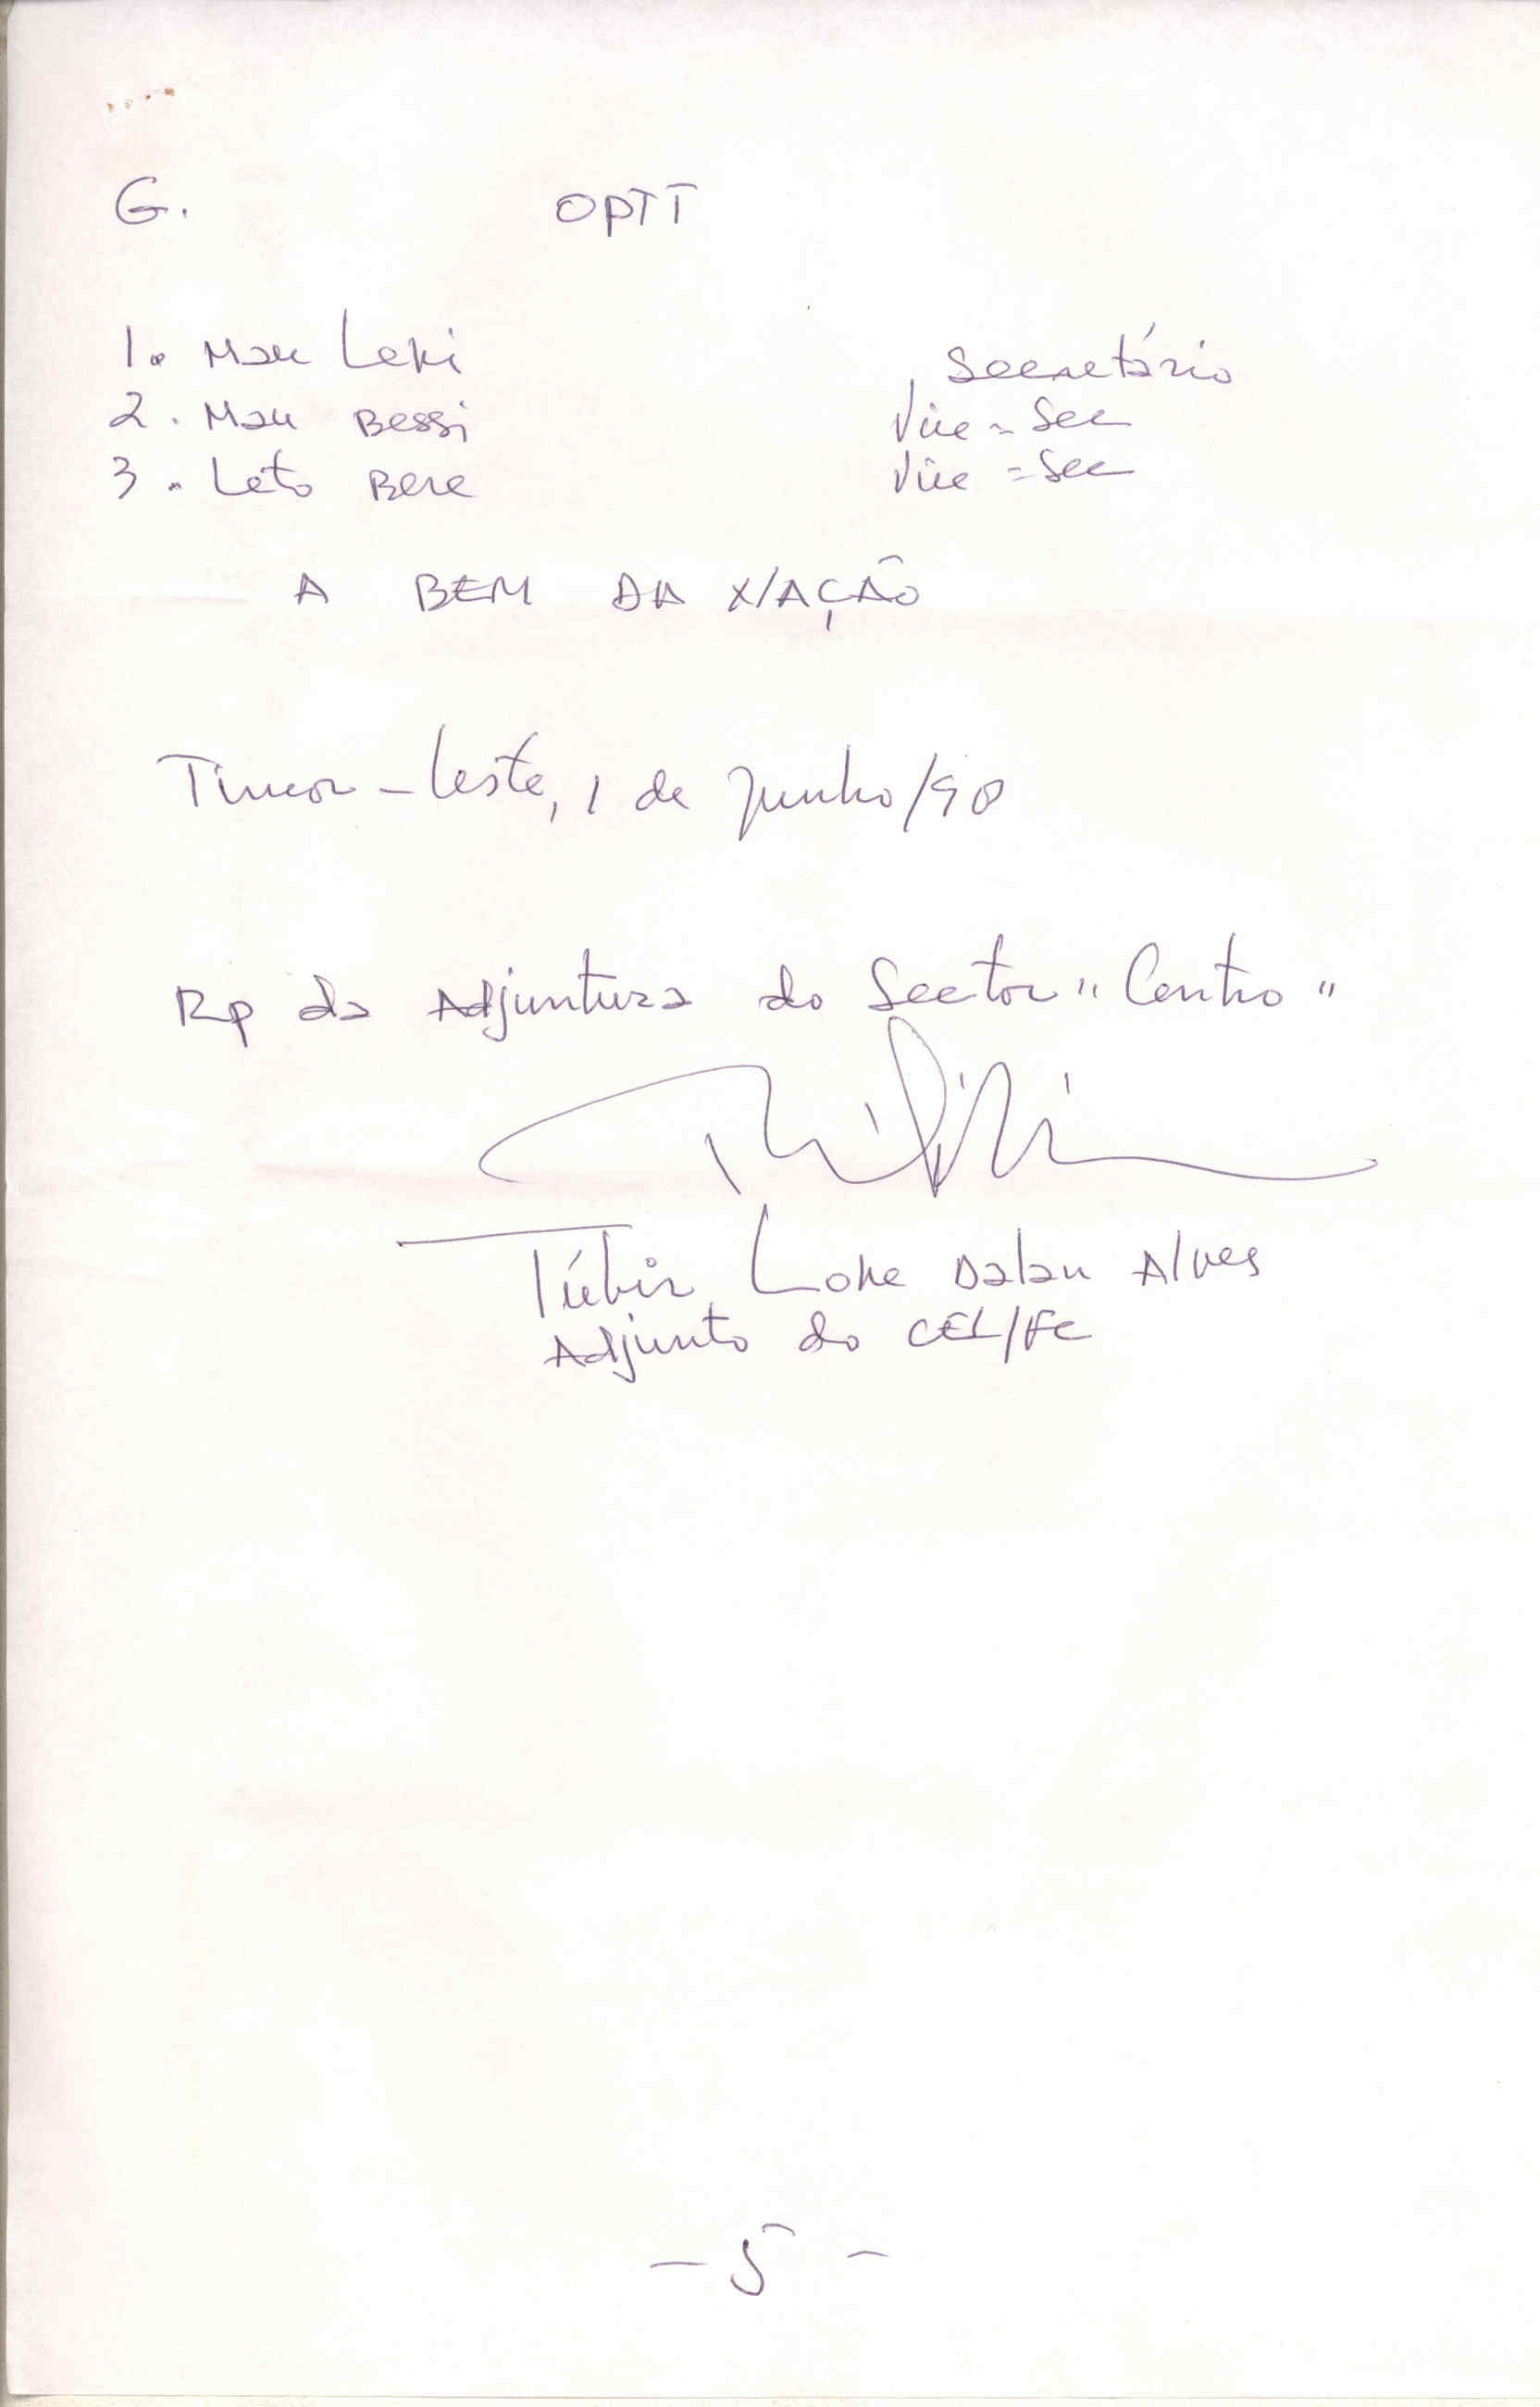 G. OPTT
1. Mau Leki Secretário
2. Mau Bessi Vice-Sec
3. Leto Bere Vice-Sec
A BEM DA NAÇÃO
Timor-Leste, 1 de Junho/98
Rp da Adjuntura do Sector "Centro"
Túbir Loke Dalan Alves
Adjunto do CEL/FC
- 5 -